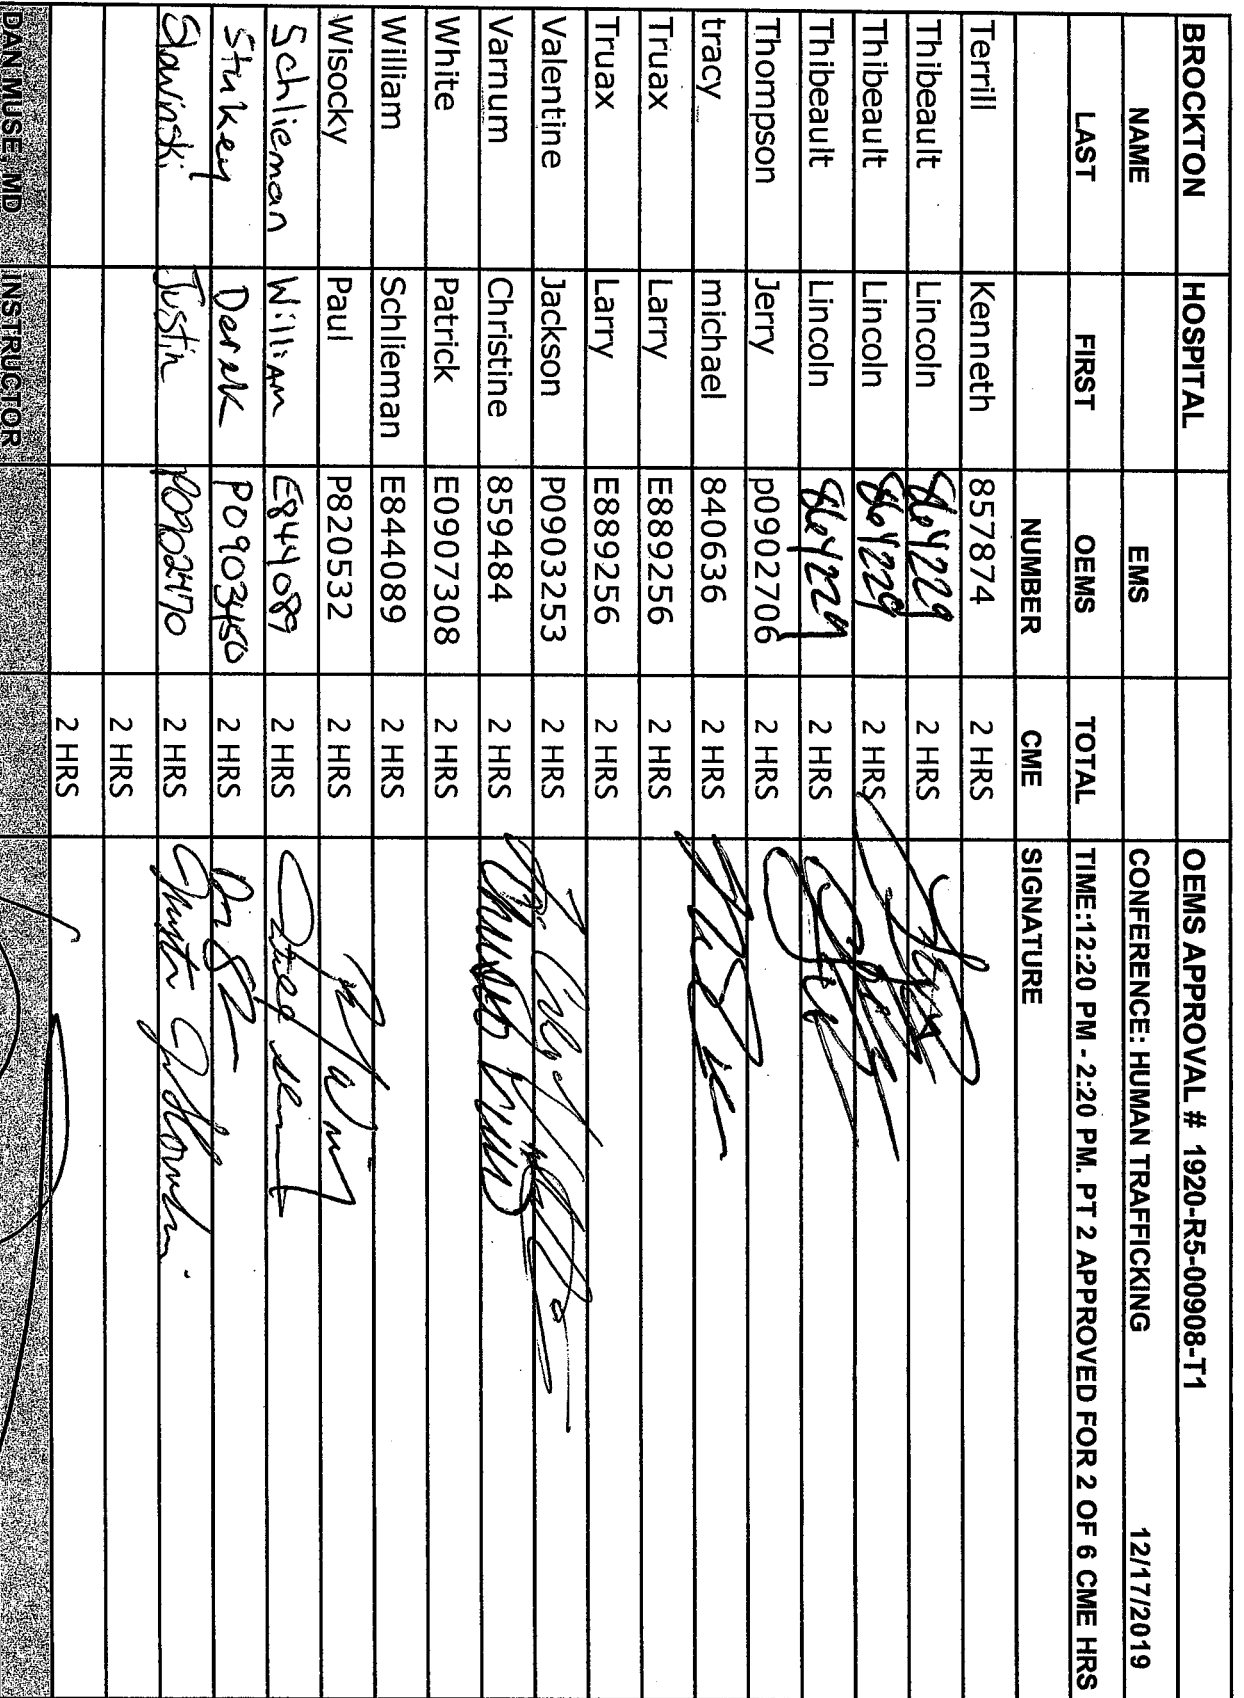 BROCKTON HOSPITAL OEMS APPROVAL # 1920-R5-00908-T1
NAME EMS CONFERENCE: HUMAN TRAFFICKING 12/17/2019
LAST FIRST OEMS TOTAL TIME:12:20 PM - 2:20 PM. PT 2 APPROVED FOR 2 OF 6 CME HRS
NUMBER CME SIGNATURE
Terrill Kenneth 857874 2 HRS
Thibeault Lincoln 864229 2 HRS
Thibeault Lincoln 864229 2 HRS
Thibeault Lincoln 864229 2 HRS
Thompson Jerry p0902706 2 HRS
tracy michael 840636 2 HRS
Truax Larry E889256 2 HRS
Truax Larry E889256 2 HRS
Valentine Jackson P0903253 2 HRS
Varnum Christine 859484 2 HRS
White Patrick E0907308 2 HRS
William Schlieman E844089 2 HRS
Wisocky Paul P820532 2 HRS
Schlieman William E844089 2 HRS
Stukey Derek P0903450 2 HRS
Slawinski Justin P0902470 2 HRS
2 HRS
2 HRS
DAN MUSE, MD INSTRUCTOR